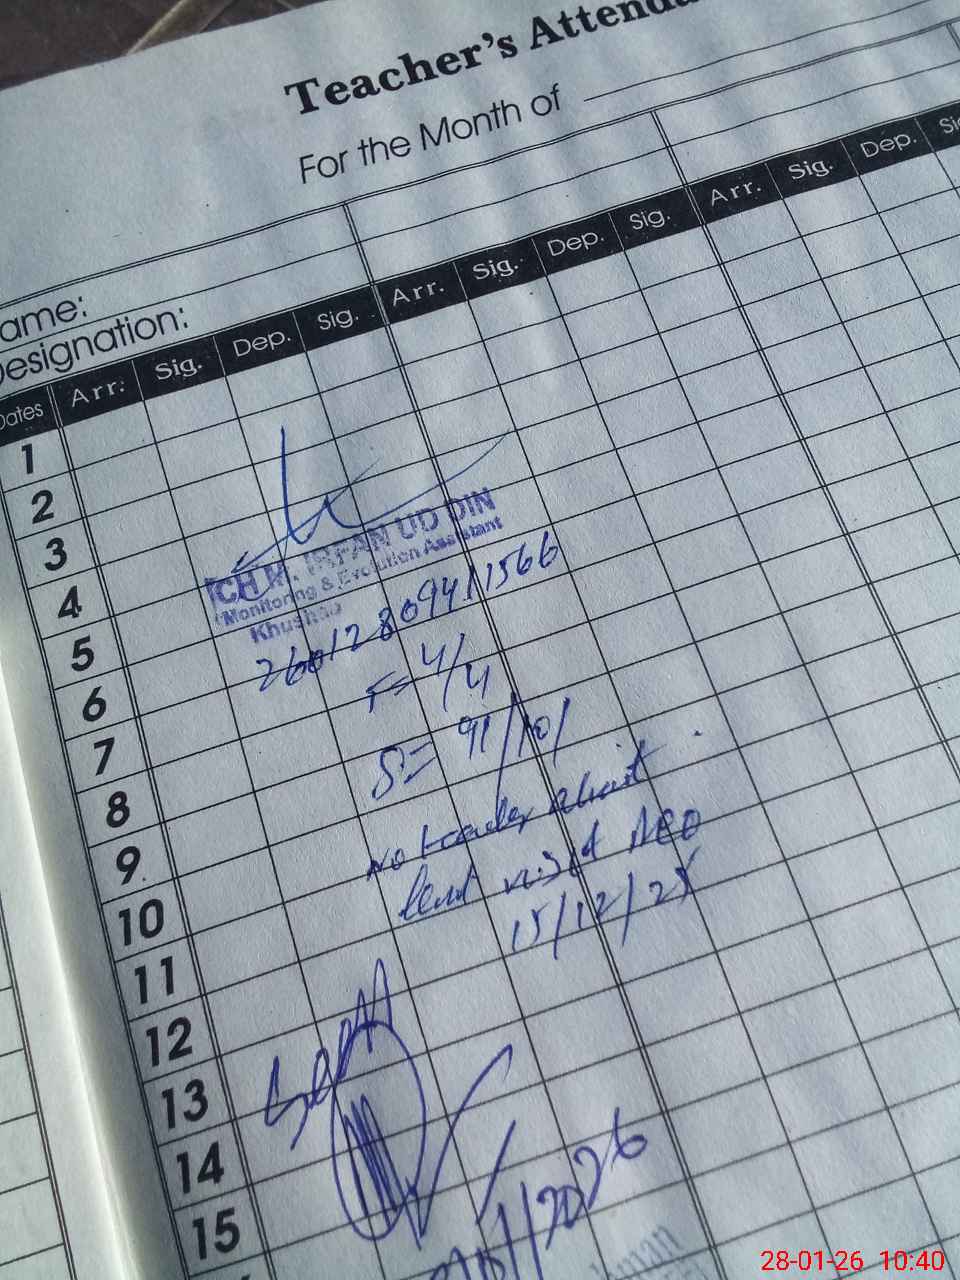 Teacher's Attenda
For the Month of
ame:
esignation:
Dates Arr: Sig. Dep. Sig. Arr. Sig. Dep. Sig. Arr. Sig. Dep. Si
1
2
3
CH M. IRFAN UD DIN
Monitoring & Evolution Assistant
4
Khushab
5
260128094111566
6
T= 4/4
7
S= 91/101
8
No teacher absent
9
last visit AEO
10
15/12/25
11
12
13
Seen
14
15
/2026
28-01-26 10:40